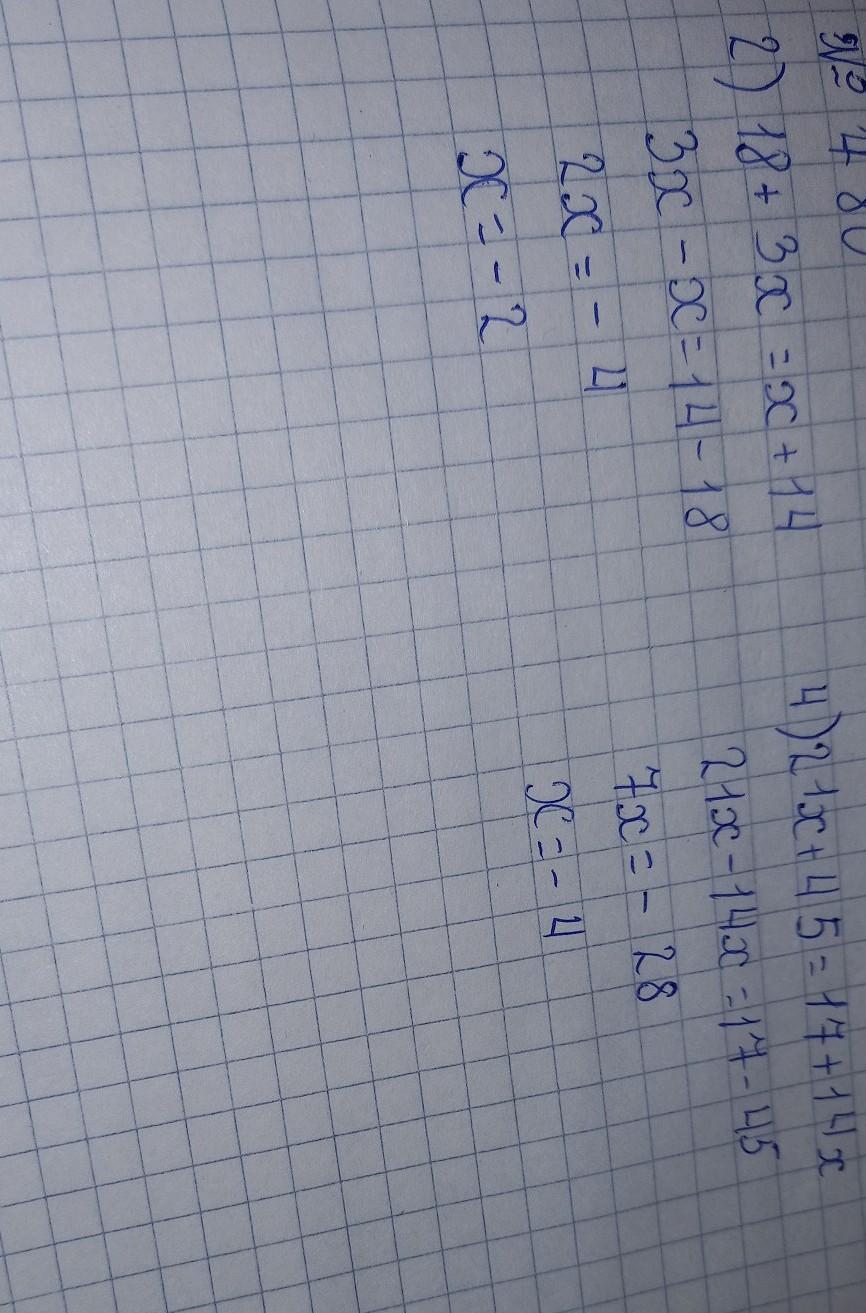 № 480
2) 18 + 3x = x + 14
3x - x = 14 - 18
2x = - 4
x = - 2
4) 21x + 45 = 17 + 14x
21x - 14x = 17 - 45
7x = - 28
x = - 4